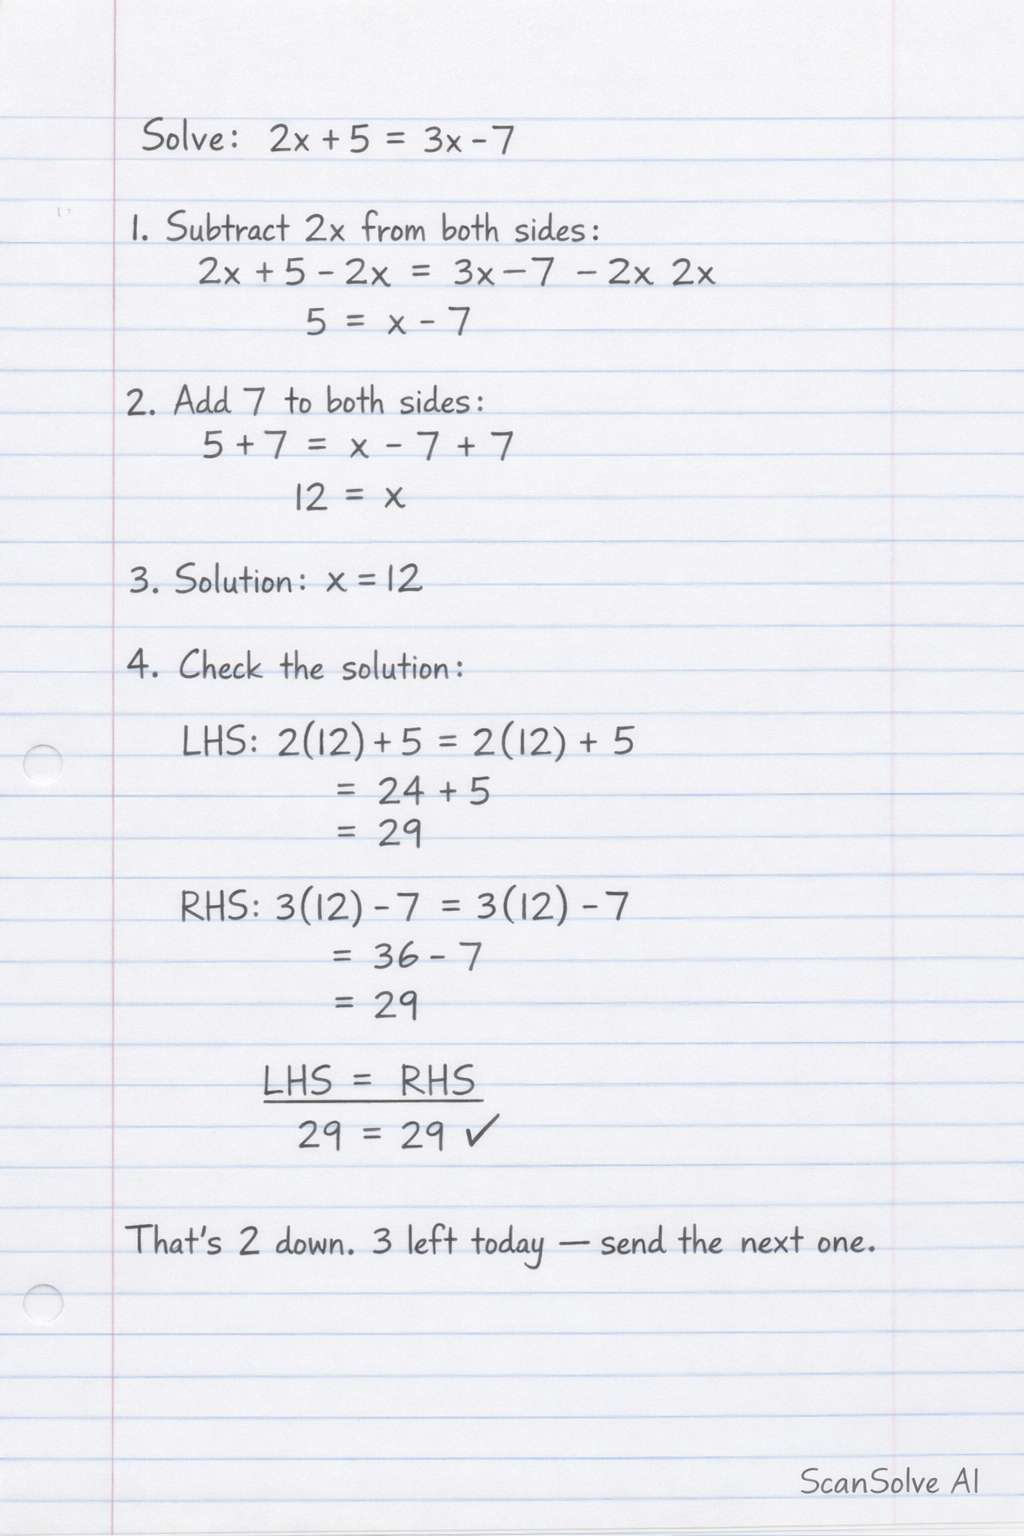 Solve: 2x + 5 = 3x - 7
1. Subtract 2x from both sides:
2x + 5 - 2x = 3x - 7 - 2x 2x
5 = x - 7
2. Add 7 to both sides:
5 + 7 = x - 7 + 7
12 = x
3. Solution: x = 12
4. Check the solution:
LHS: 2(12) + 5 = 2(12) + 5
= 24 + 5
= 29
RHS: 3(12) - 7 = 3(12) - 7
= 36 - 7
= 29
LHS = RHS
29 = 29 ✓
That's 2 down. 3 left today — send the next one.
ScanSolve AI